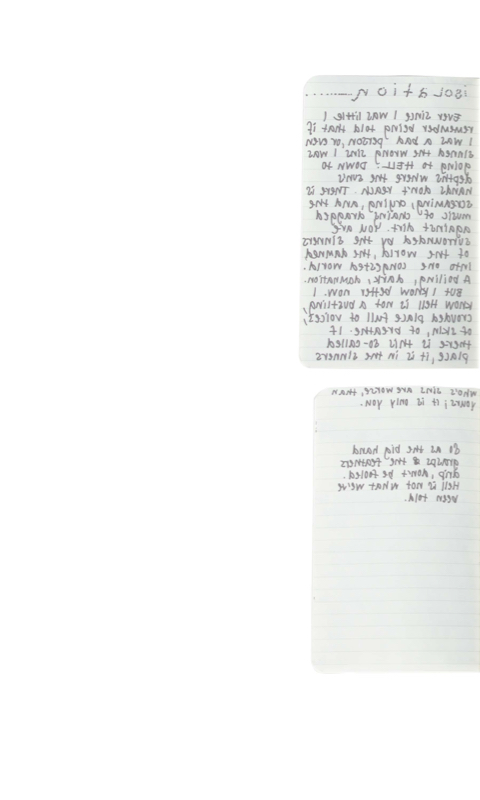 isolation..........
Ever since I was little I
remember being told that if
I was a bad person, or even
sinned the wrong sins I was
going to HELL- Down to
depths where the suns
hands don't reach. There is
screaming, crying, and the
music of chains dragged
against dirt. You are
surrounded by the sinners
of the world, the damned
into one congested world.
A boiling, dark, damnation.
But I know better now. I
know Hell is not a bustling,
crowded place full of voices,
of skin, of breathe. If
there is this so-called
place, it is in the sinners
who's sins are worse, than
yours; it is only you.
So as the big hand
grasps & the feathers
drip, don't be fooled.
Hell is not what we've
been told.